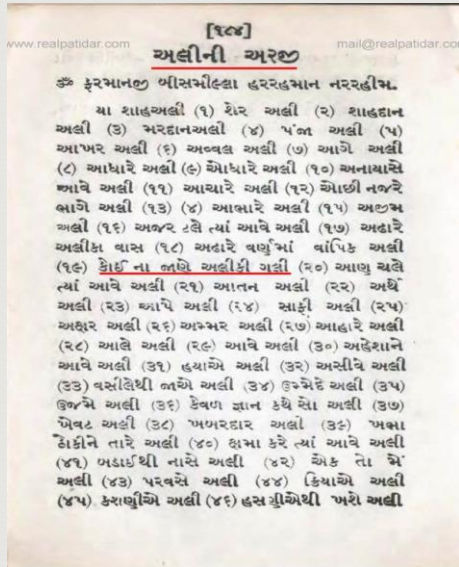 [૧૮૪]
www.realpatidar.com
mail@realpatidar.co
અલીની અરજી
ૐ ફરમાનજી બીસમીલ્લા હરરહમાન નરરહીમ.
યા શાહઅલી (૧) શેર અલી (૨) શાહદાન
અલી (૩) મરદાનઅલી (૪) પંજા અલી (૫)
આખર અલી (૬) અવ્વલ અલી (૭) આગે અલી
(૮) આધારે અલી (૯) ઓધારે અલી (૧૦) અનાયાસે
આવે અલી (૧૧) આચારે અલી (૧૨) ઓછી નજરે
ભાગે અલી (૧૩) (૪) આભારે અલી (૧૫) અજીમ
અલી (૧૬) અજર ટલે ત્યાં આવે અલી (૧૭) અઢારે
અલીકા વાસ (૧૮) અઢારે વર્ણમાં વાંપિક અલી
(૧૯) કોઈ ના જાણે અલીકી ગલી (૨૦) આણુ ચલે
ત્યાં આવે અલી (૨૧) આતન અલી (૨૨) અથેં
અલી (૨૩) આપે અલી (૨૪) સાફી અલી (૨૫)
અક્ષર અલી (૨૬) અમ્મર અલી (૨૭) આહારે અલી
(૨૮) આલે અલી (૨૯) આવે અલી (૩૦) અહેશાને
આવે અલી (૩૧) હયાએ અલી (૩૨) અસીવે અલી
(૩૩) વસીલેથી જાએ અલી (૩૪) ઉમ્મેદે અલી (૩૫)
ઉજમે અલી (૩૬) કેવળ જ્ઞાન કથે સો અલી (૩૭)
ખેવટ અલી (૩૮) ખબરદાર અલી (૩૯) ખભા
ઠોકીને તારે અલી (૪૦) ક્ષમા કરે ત્યાં આવે અલી
(૪૧) બડાઈથી નાસે અલી (૪૨) એક તો મેં
અલી (૪૩) પરવસે અલી (૪૪) ક્રિયાએ અલી
(૪૫) કરાણીએ અલી (૪૬) હસ ખરો અલી